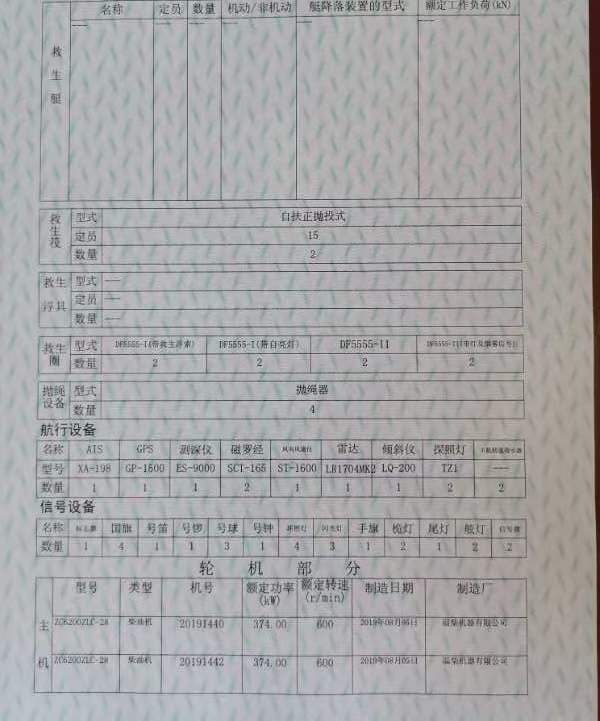 救生艇 名称 定员 数量 机动/非机动 艇降落装置的型式 额定工作负荷(kN)
救生筏 型式 自扶正抛投式
定员 15
数量 2
救生浮具 型式 ---
定员 ---
数量 ---
救生圈 型式 DF5555-II(带救生浮索) DF5555-I(带自亮灯) DF5555-II
数量 2 2 2 2
抛绳设备 型式 抛绳器
数量 4
航行设备
名称 AIS GPS 测深仪 磁罗经 雷达 倾斜仪 探照灯
型号 XA-198 GP-1500 ES-9000 SCT-165 ST-1600 LR1704MK2 LQ-200 TZ1 ---
数量 1 1 1 2 1 1 1 2 2
信号设备
名称 国旗 号笛 号锣 号球 号钟 闪光灯 手旗 桅灯 尾灯 舷灯
数量 1 4 1 1 3 1 4 3 1 2 1 2 2
轮机部分
型号 类型 机号 额定功率(kW) 额定转速(r/min) 制造日期 制造厂
主机 ZC6200ZLC-2B 柴油机 20191440 374.00 600
ZC6200ZLC-2B 柴油机 20191442 374.00 600